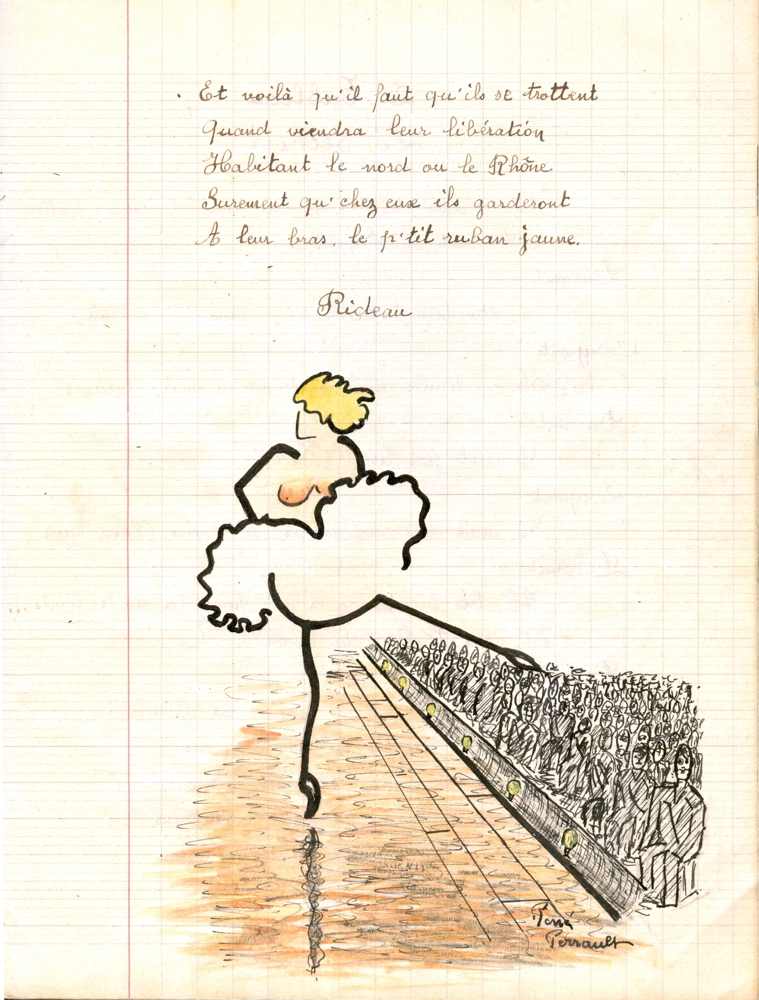 Et voilà qu'il faut qu'ils se trottent
Quand viendra leur libération
Habitant le nord ou le Rhône
Surement qu'chez eux ils garderont
A leur bras, le p'tit ruban jaune.
Rideau
Perrault